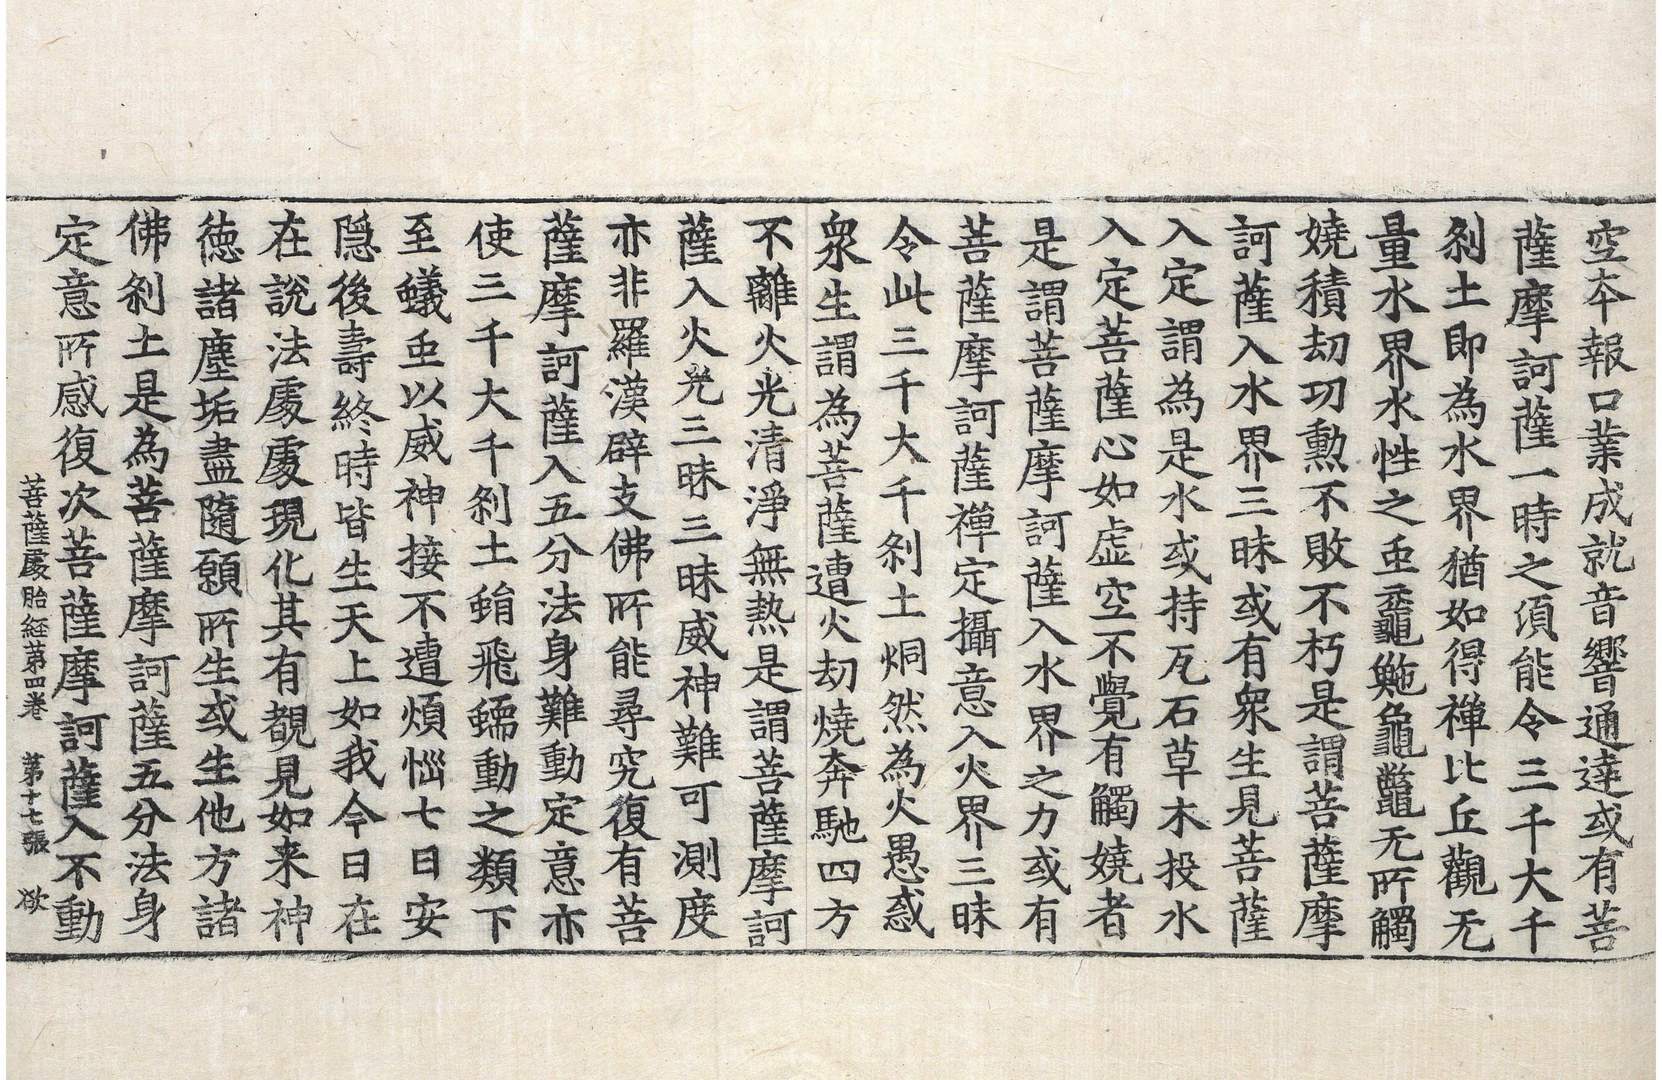 空本報口業成就音響通達或有菩
薩摩訶薩一時之須能令三千大千
刹土即為水界猶如得禅比丘觀无
量水界水性之䖝黿鼉龜鼈无所觸
嬈積刧功勲不敗不朽是謂菩薩摩
訶薩入水界三昧或有衆生見菩薩
入定謂為是水或持瓦石草木投水
入定菩薩心如虚空不覺有觸嬈者
是謂菩薩摩訶薩入水界之力或有
菩薩摩訶薩禅定攝意入火界三昧
令此三千大千刹土烔然為火愚惑
衆生謂為菩薩遭火刧燒奔馳四方
不離火光清淨無熱是謂菩薩摩訶
薩入火光三昧三昧威神難可測度
亦非羅漢辟支佛所能尋究復有菩
薩摩訶薩入五分法身難動定意亦
使三千大千刹土蜎飛蠕動之類下
至蟻䖝以威神接不遭煩惱七日安
隠後壽終時皆生天上如我今日在
在說法處處現化其有覩見如来神
徳諸塵垢盡隨願所生或生他方諸
佛刹土是為菩薩摩訶薩五分法身
定意所感復次菩薩摩訶薩入不動
菩薩處胎經第四卷 第十七張 欲